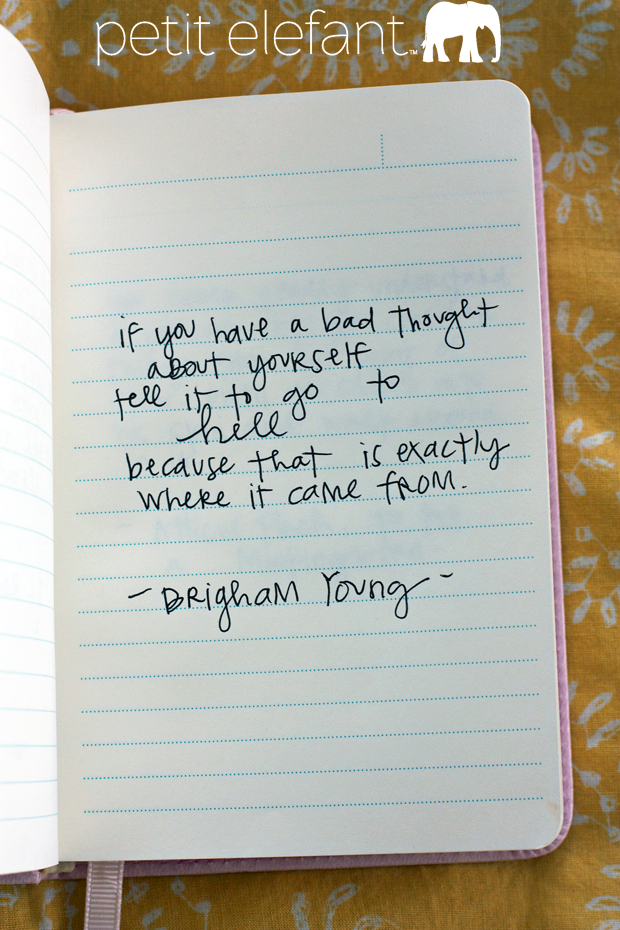 petit elefant.™
if you have a bad thought
about yourself
tell it to go to
hell
because that is exactly
where it came from.
- Brigham Young -